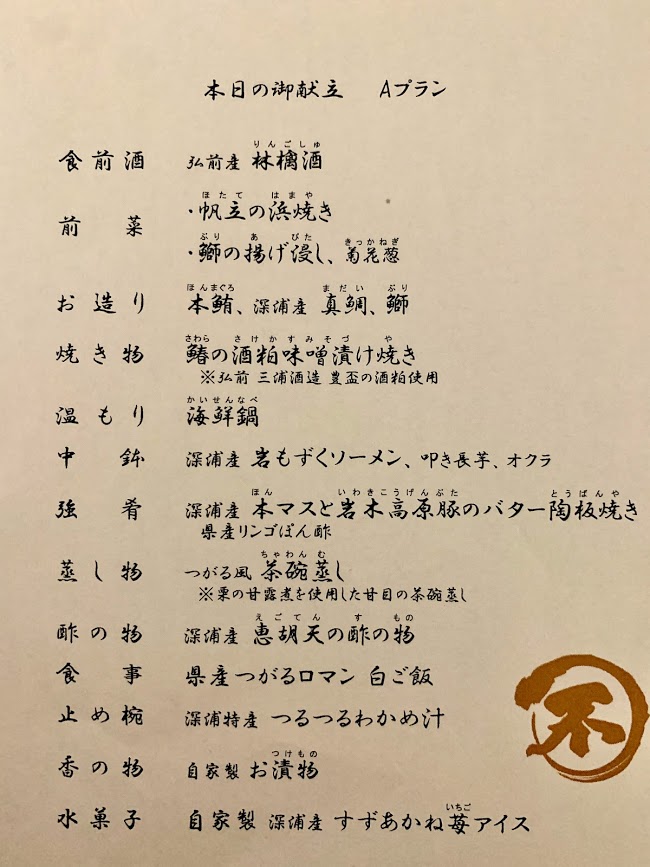 本日の御献立 Aプラン
食前酒 弘前産 林檎酒
りんごしゅ
前菜 ・帆立の浜焼き
ほたて はまや
・鰤の揚げ浸し、菊花葱
ぶり あ びた きっかねぎ
お造り 本鮪、深浦産 真鯛、鰤
ほんまぐろ まだい ぶり
焼き物 鰆の酒粕味噌漬け焼き
さわら さけかすみそづ や
※弘前 三浦酒造 豊盃の酒粕使用
温もり 海鮮鍋
かいせんなべ
中鉢 深浦産 岩もずくソーメン、叩き長芋、オクラ
強肴 深浦産 本マスと岩木高原豚のバター陶板焼き
ほん いわきこうげんぶた とうばんや
県産リンゴぽん酢
蒸し物 つがる風 茶碗蒸し
ちゃわん む
※栗の甘露煮を使用した甘目の茶碗蒸し
酢の物 深浦産 恵胡天の酢の物
えごてん す もの
食事 県産つがるロマン 白ご飯
止め椀 深浦特産 つるつるわかめ汁
香の物 自家製 お漬物
つけもの
水菓子 自家製 深浦産 すずあかね苺アイス
いちご
不